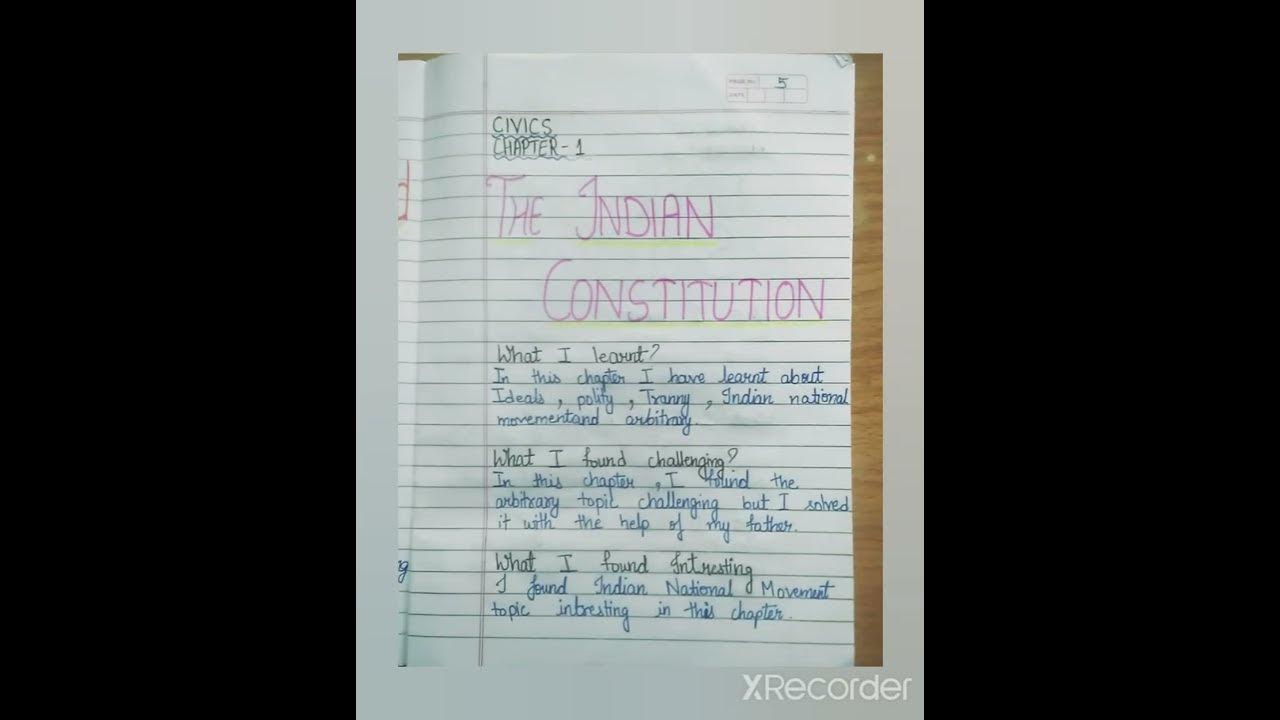 PAGE NO. 5
DATE
CIVICS
CHAPTER-1
THE INDIAN
CONSTITUTION
What I learnt?
In this chapter I have learnt about
Ideals, polity, Tranny, Indian national
movementand arbitrary.
What I found challenging?
In this chapter, I found the
arbitrary topic challenging but I solved
it with the help of my father.
What I found Intresting
I found Indian National Movement
topic intresting in this chapter.
d
g
XRecorder